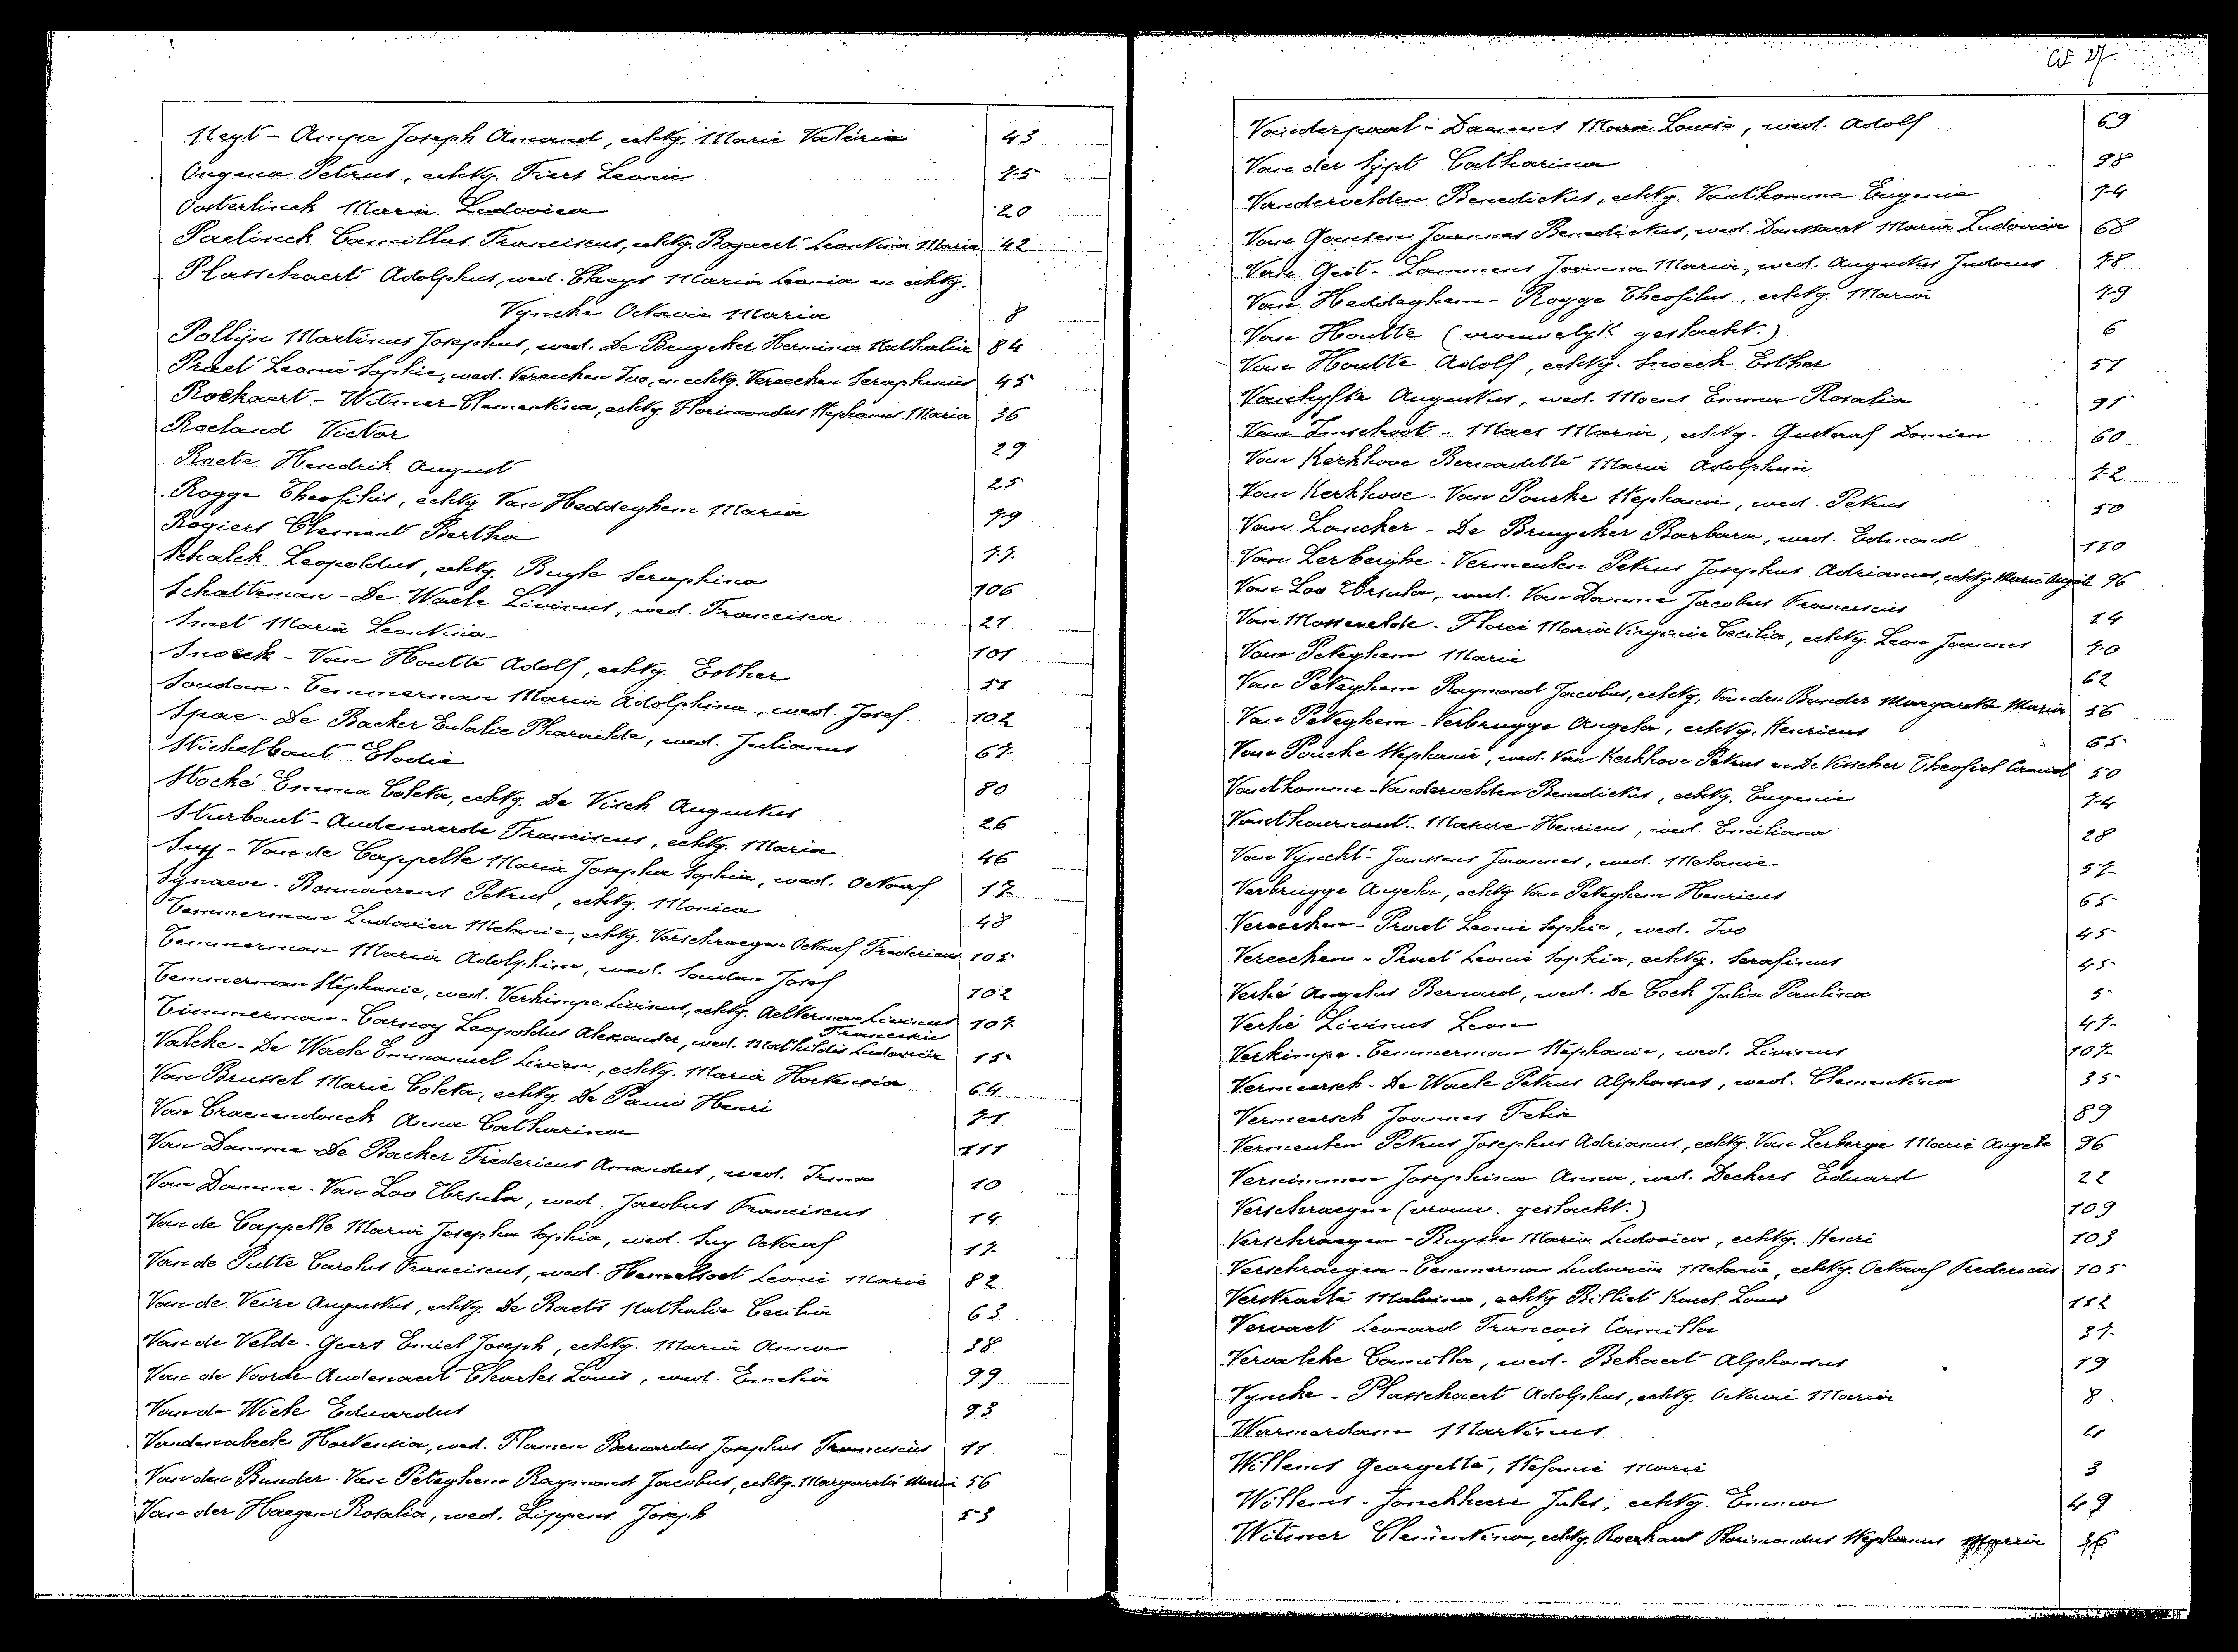 Neyt - Ampe Joseph Amand, echtg. Marie Valérie 43
Ongena Petrus, echtg. Fiers Leonie 75
Oosterlinck Maria Ludovica 20
Paelinck Camillus Franciscus, echtg. Bogaert Leontina Maria 42
Plasschaert Adolphus, wed. Claeys Maria Leonia en echtg.
Vyncke Octavie Maria 8
Pollijn Martinus Josephus, wed. De Bruycker Hermina Nathalia 84
Praet Leonie Sophie, wed. Vereecken Ivo, en echtg. Vereecken Seraphinus 45
Rockaert - Witmer Clementina, echtg. Florimondus Stephanus Maria 36
Roeland Victor 29
Roets Hendrik August 25
Rogge Theofilus, echtg. Van Heddeghem Maria 79
Rogiers Clement Bertha 77
Schalck Leopoldus, echtg. Buyle Seraphina 106
Schatteman - De Waele Livinus, wed. Francisca 21
Smet Maria Leontina 101
Snoeck - Van Houtte Adolf, echtg. Esther 51
Soudan - Temmerman Maria Adolphina, wed. Josef 102
Spae - De Backer Eulalie Pharaïlde, wed. Julianus 67
Stichelbaut Elodie 80
Stocké Emma Coleta, echtg. De Visch Augustus 26
Sturbaut - Audenaerde Franciscus, echtg. Maria 46
Suy - Van de Cappelle Maria Josepha Sophia, wed. Octaaf 17
Synaeve - Bonnaerens Petrus, echtg. Monica 48
Temmerman Ludovica Melanie, echtg. Verschraegen Octaaf Fredericus 105
Temmerman Maria Adolphina, wed. Soudan Josef 102
Temmerman Stéphanie, wed. Verkimpe Livinus, echtg. Aelterman Livinus Franciscus 107
Timmerman - Carnoy Leopoldus Alexander, wed. Mathildis Ludovica 15
Valcke - De Waele Emmanuel Livien, echtg. Maria Hortensia 64
Van Brussel Marie Coleta, echtg. De Pauw Henri 71
Van Craenendonck Anna Catharina 111
Van Damme - De Backer Fredericus Amandus, wed. Irma 10
Van Damme - Van Loo Ursula, wed. Jacobus Franciscus 14
Van de Cappelle Maria Josepha Sophia, wed. Suy Octaaf 17
Van de Putte Carolus Franciscus, wed. Hemelsoet Leonie Marie 82
Van de Veire Augustus, echtg. De Baets Nathalie Cecilia 63
Van de Velde - Geers Emiel Joseph, echtg. Maria Anna 38
Van de Voorde - Audenaert Charles Louis, wed. Emelia 99
Van de Wiele Eduardus 93
Vandenabeele Hortensia, wed. Flamen Bernardus Josephus Franciscus 11
Van den Bunder - Van Peteghem Raymond Jacobus, echtg. Margareta Maria 56
Van der Haegen Rosalia, wed. Lippens Joseph 53
Vanderpoort - Daenens Maria Louisa, wed. Adolf 69
Van der Sypt Catharina 98
Vandervelden Benedictus, echtg. Vanthomme Eugenie 74
Van Gansen Joannes Benedictus, wed. Danssaert Maria Ludovica 68
Van Geit - Lammens Joanna Maria, wed. Augustus Judocus 78
Van Heddeghem - Rogge Theofilus, echtg. Maria 79
Van Houtte (vrouwelijk geslacht.) 6
Van Houtte Adolf, echtg. Snoeck Esther 51
Vanhyfte Augustus, wed. Moens Emma Rosalia 91
Van Imschoot - Maes Maria, echtg. Gustaaf Damien 60
Van Kerkhove Bernadette Maria Adolphina 72
Van Kerkhove - Van Poucke Stephanie, wed. Petrus 50
Van Lancker - De Bruycker Barbara, wed. Edmond 110
Van Lerberghe - Vermeulen Petrus Josephus Adrianus, echtg. Marie Angèle 96
Van Loo Ursula, wed. Van Damme Jacobus Franciscus 14
Van Mossevelde - Florei Maria Virginie Cecilia, echtg. Leon Joannes 70
Van Peteghem Marie 62
Van Peteghem Raymond Jacobus, echtg. Van den Bunder Margareta Maria 56
Van Peteghem - Verbrugge Angela, echtg. Henricus 65
Van Poucke Stephanie, wed. Van Kerkhove Petrus en De Visscher Theofiel Camiel 50
Vanthomme - Vandervelden Benedictus, echtg. Eugenie 74
Vanthournout - Mature Henricus, wed. Emiliana 28
Van Vynckt - Janssens Joannes, wed. Melanie 57
Verbrugge Angela, echtg. Van Peteghem Henricus 65
Vereecken - Praet Leonie Sophie, wed. Ivo 45
Vereecken - Praet Leonie Sophia, echtg. Serafinus 45
Verhé Angelus Bernard, wed. De Cock Julia Paulina 5
Verhé Livinus Leon 47
Verkimpe - Temmerman Stéphanie, wed. Livinus 107
Vermeersch - De Waele Petrus Alphonsus, wed. Clementina 35
Vermeersch Joannes Felix 89
Vermeulen Petrus Josephus Adrianus, echtg. Van Lerberge Marie Angèle 96
Vernimmen Josephina Anna, wed. Deckers Eduard 22
Verschraegen (vrouw. geslacht.) 109
Verschraegen - Buysse Maria Ludovica, echtg. Henri 103
Verschraegen - Temmerman Ludovica Melanie, echtg. Octaaf Fredericus 105
Verstraete Malvina, echtg. Billiet Karel Louis 112
Vervaet Leonard François Camilla 37
Vervalcke Camilla, wed. Bekaert Alphonsus 19
Vyncke - Plasschaert Adolphus, echtg. Octavie Maria 8
Warmerdam Martinus
Willems Georgette, Stefanie Marie 3
Willems - Jonckheere Jules, echtg. Emma 49
Witmer Clementina, echtg. Rockaert Florimondus Stephanus Maria 36